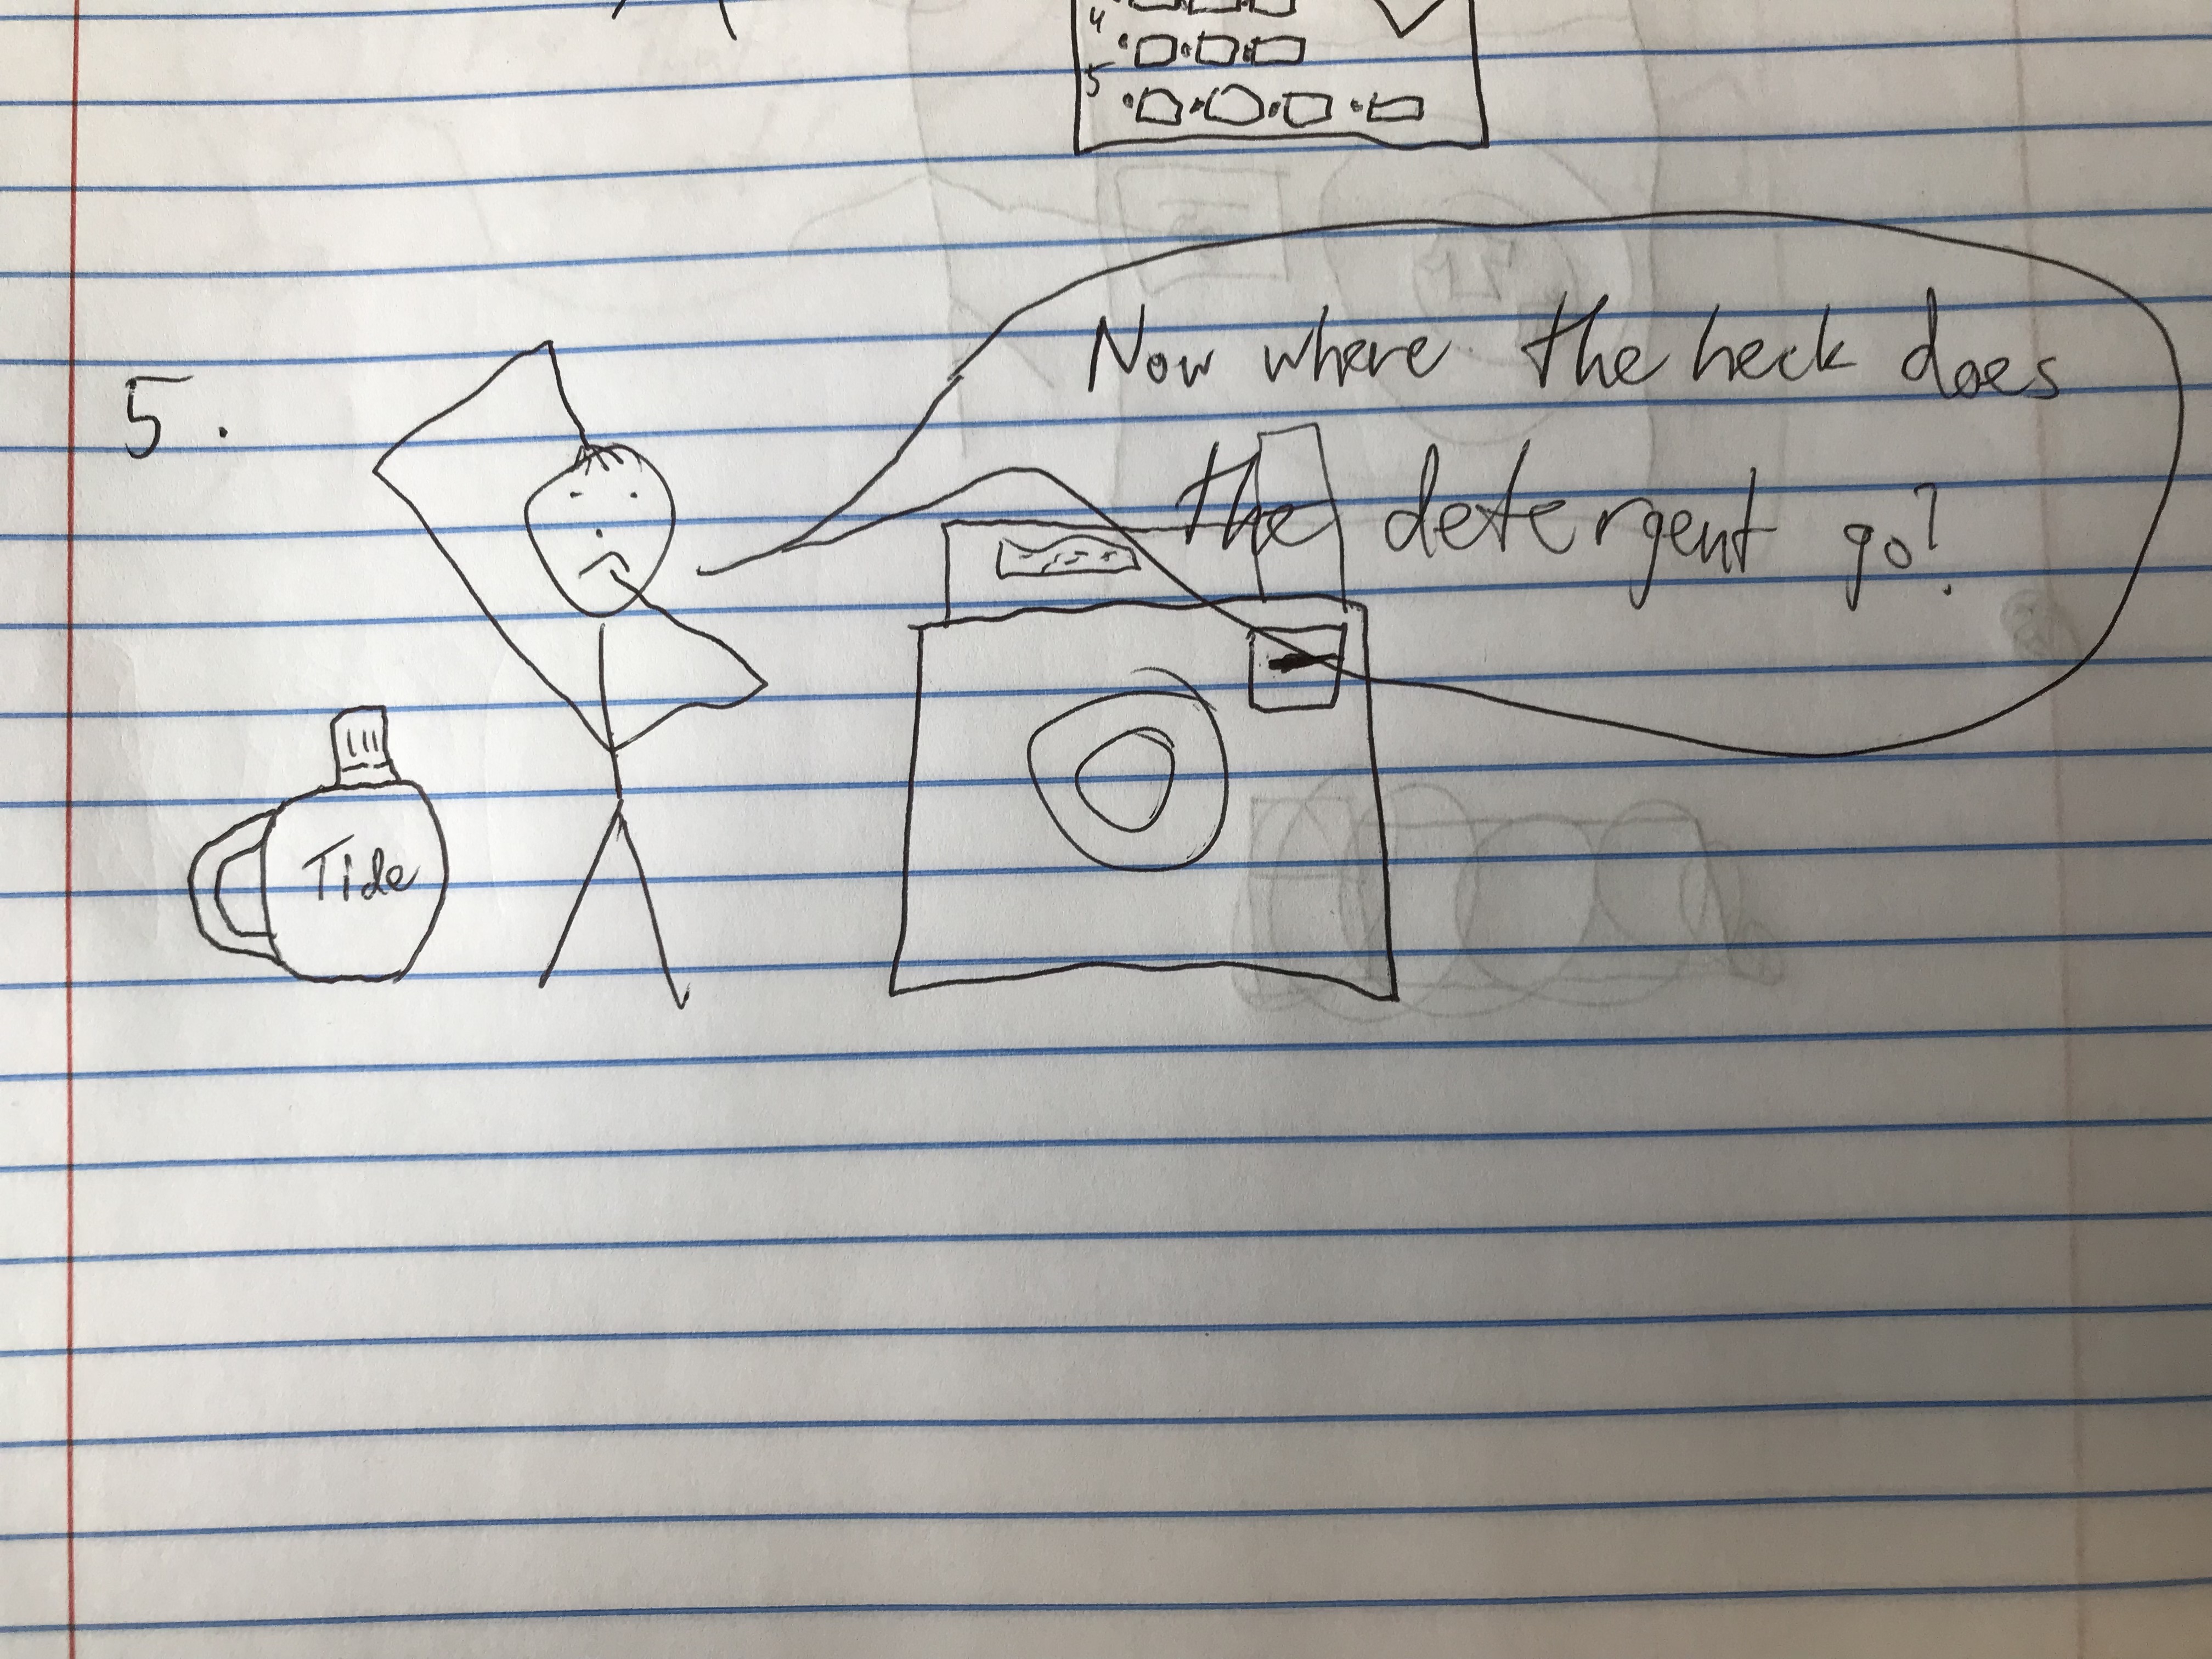 4
5
5.
Now where the heck does
the detergent go?
Tide